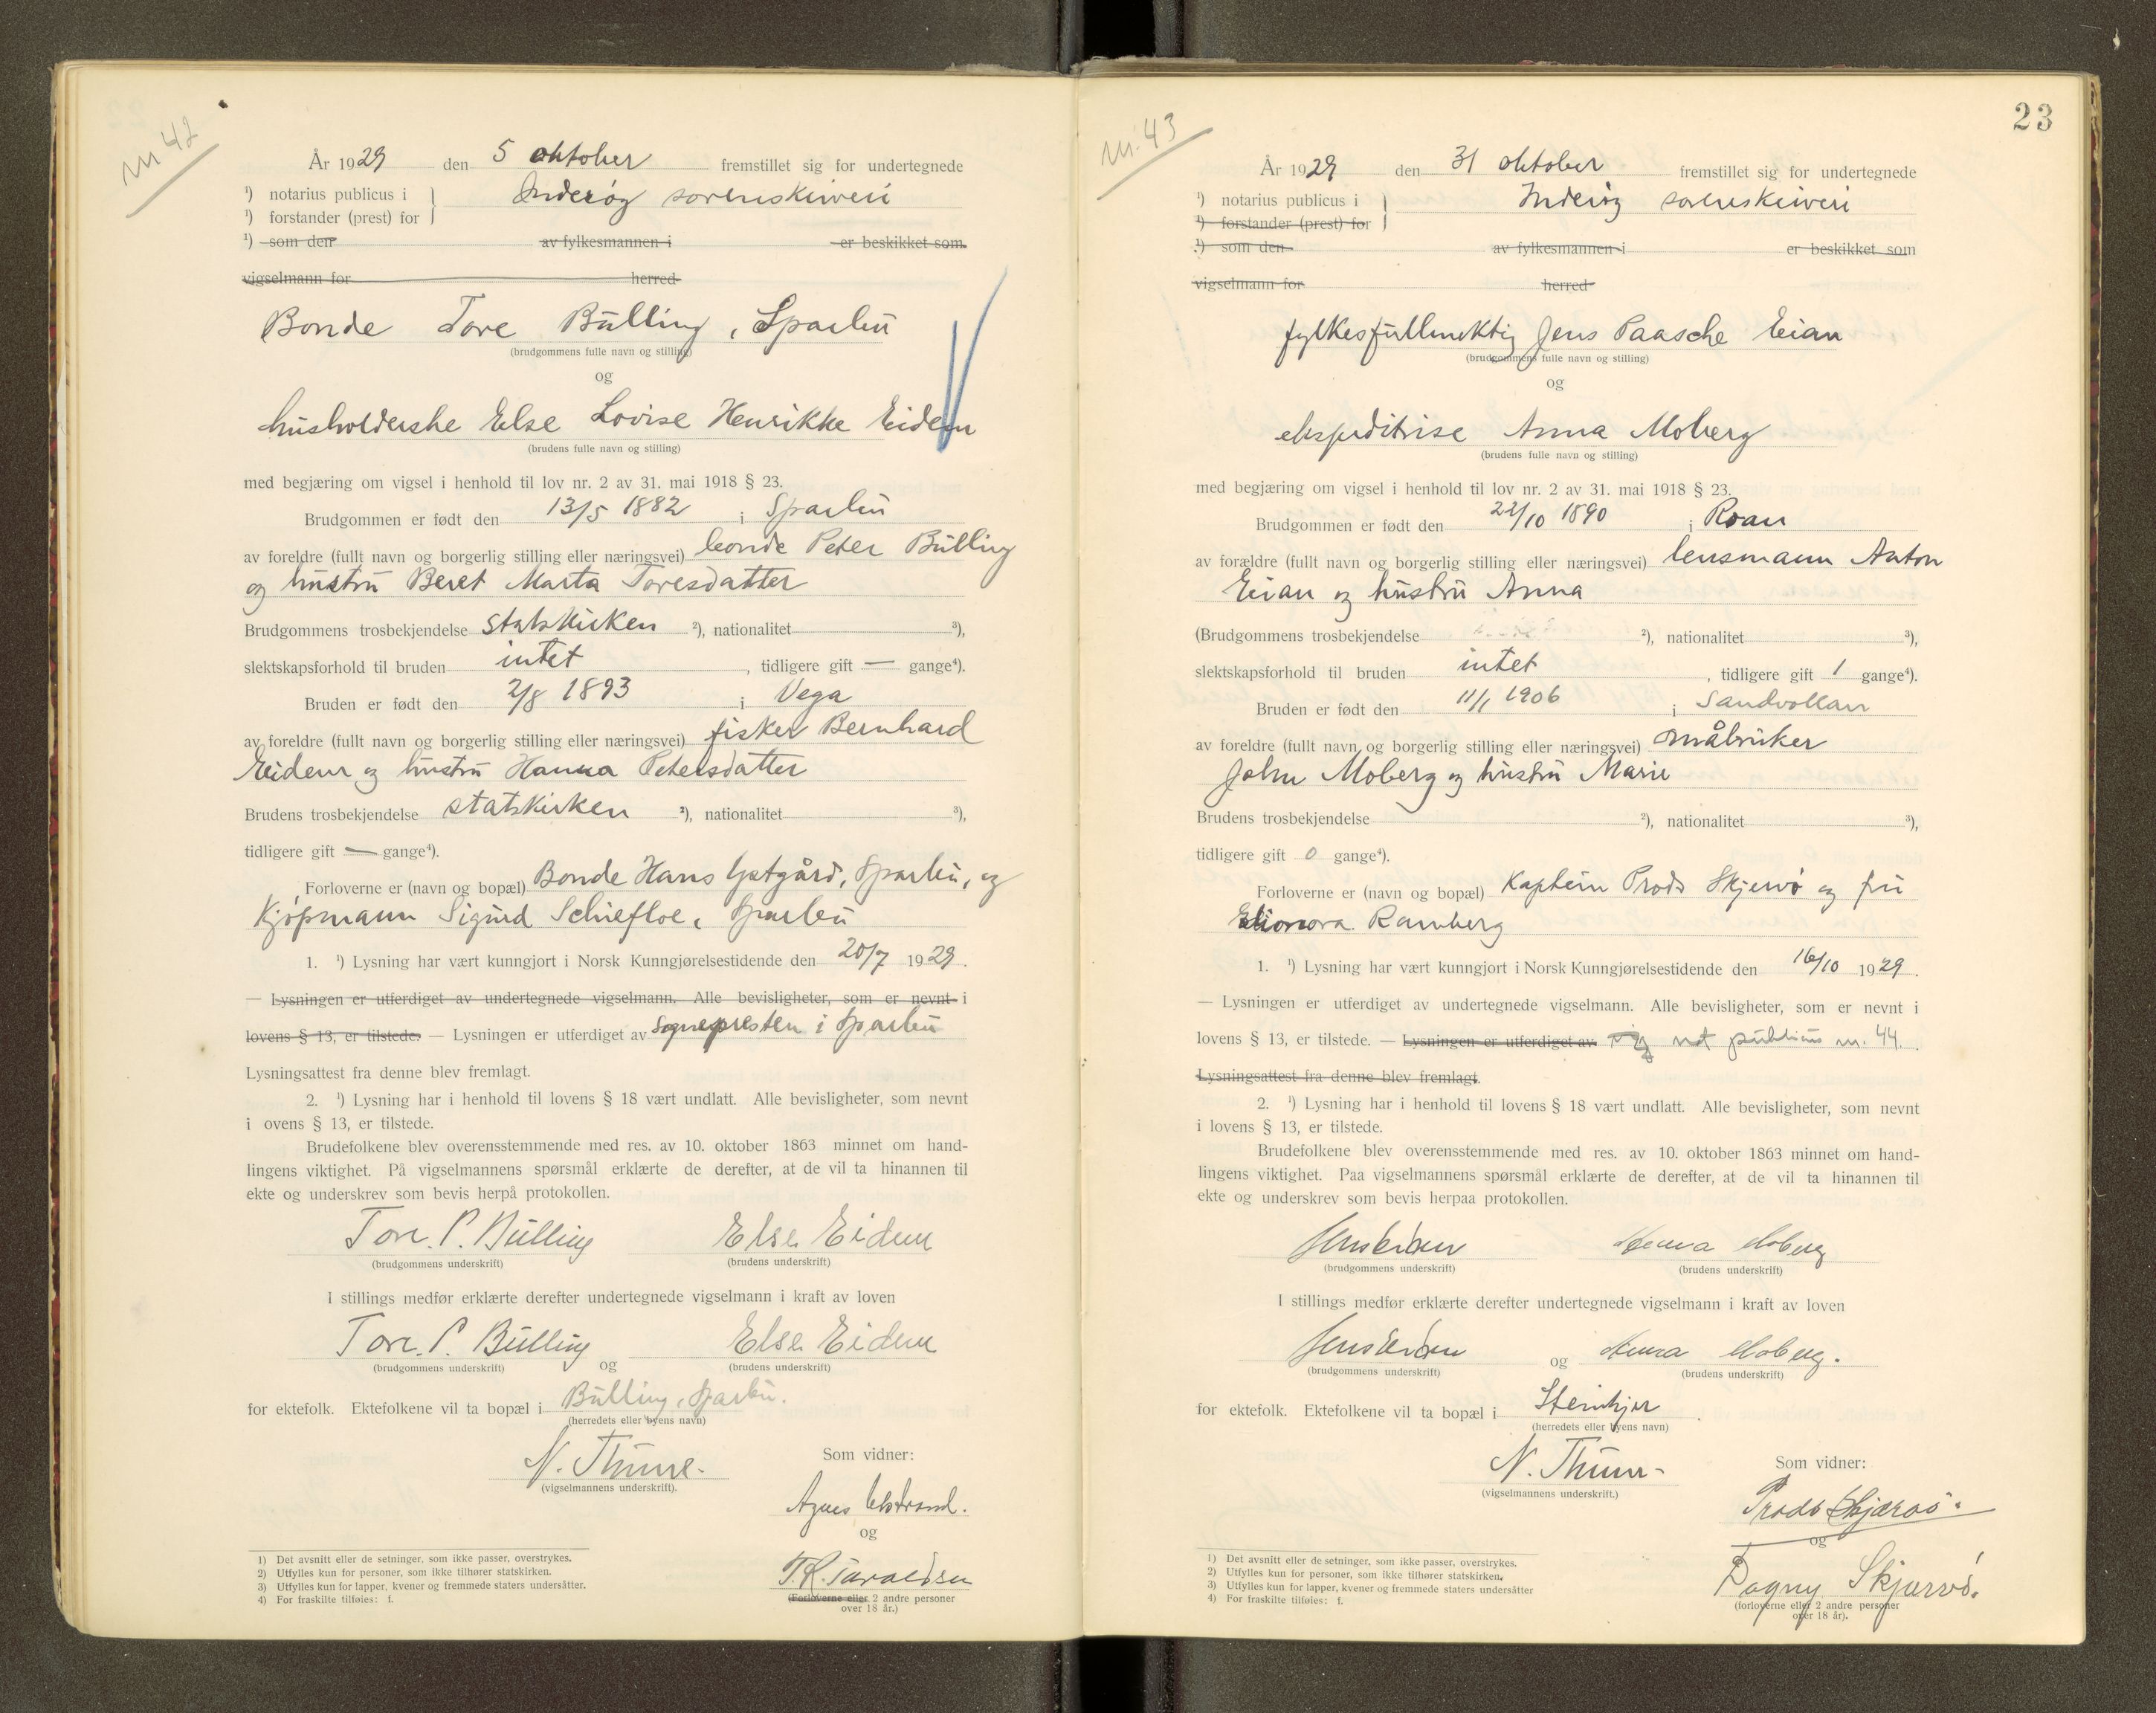 nr 42
År 1929 den 5 oktober fremstillet sig for undertegnede
¹) notarius publicus i } Inderøy sorenskriveri
¹) forstander (prest) for
¹) som den av fylkesmannen i er beskikket som
vigselmann for herred
Bonde Tore Bulling, Sparbu
(brudgommens fulle navn og stilling)
og
husholderske Else Lovise Henrikke Eidem
(brudens fulle navn og stilling)
med begjæring om vigsel i henhold til lov nr. 2 av 31. mai 1918 § 23.
Brudgommen er født den 13/5 1882 i Sparbu
av foreldre (fullt navn og borgerlig stilling eller næringsvei) bonde Peter Bulling
og hustru Beret Marta Toresdatter
Brudgommens trosbekjendelse statskirken ²), nationalitet ³),
slektskapsforhold til bruden intet , tidligere gift — gange⁴).
Bruden er født den 2/8 1893 i Vega
av foreldre (fullt navn og borgerlig stilling eller næringsvei) fisker Bernhard
Eidem og hustru Hanna Petersdatter
Brudens trosbekjendelse statskirken ²), nationalitet ³),
tidligere gift — gange⁴).
Forloverne er (navn og bopæl) Bonde Hans Ystgård, Sparbu, og
Kjøpmann Sigurd Schiefloe, Sparbu
1. ¹) Lysning har vært kunngjort i Norsk Kunngjørelsestidende den 20/7 1929.
— Lysningen er utferdiget av undertegnede vigselmann. Alle bevisligheter, som er nevnt i
lovens § 13, er tilstede. — Lysningen er utferdiget av sognepresten i Sparbu
Lysningsattest fra denne blev fremlagt.
2. ¹) Lysning har i henhold til lovens § 18 vært undlatt. Alle bevisligheter, som nevnt
i ovens § 13, er tilstede.
Brudefolkene blev overensstemmende med res. av 10. oktober 1863 minnet om hand-
lingens viktighet. På vigselmannens spørsmål erklærte de derefter, at de vil ta hinannen til
ekte og underskrev som bevis herpå protokollen.
Tore P. Bulling Else Eidem
(brudgommens underskrift) (brudens underskrift)
I stillings medfør erklærte derefter undertegnede vigselmann i kraft av loven
Tore P. Bulling Else Eidem
(brudgommens underskrift) og (brudens underskrift)
for ektefolk. Ektefolkene vil ta bopæl i Bulling, Sparbu.
(herredets eller byens navn)
N. Thune.
(vigselmannens underskrift).
Som vidner:
Agnes
og
T. R. Taraldsen
(Forloverne eller 2 andre personer
over 18 år.)
1) Det avsnitt eller de setninger, som ikke passer, overstrykes.
2) Utfylles kun for personer, som ikke tilhører statskirken.
3) Utfylles kun for lapper, kvener og fremmede staters undersåtter.
4) For fraskilte tilføies: f.
23
nr. 43
År 1929 den 31 oktober fremstillet sig for undertegnede
¹) notarius publicus i } Inderøy sorenskriveri
¹) forstander (prest) for
¹) som den av fylkesmannen i er beskikket som
vigselmann for herred
fylkesfullmektig Jens Paasche Eian
(brudgommens fulle navn og stilling)
og
ekspeditrise Anna Moberg
(brudens fulle navn og stilling)
med begjæring om vigsel i henhold til lov nr. 2 av 31. mai 1918 § 23.
Brudgommen er født den 22/10 1890 i Roan
av forældre (fullt navn og borgerlig stilling eller næringsvei) lensmann Anton
Eian og hustru Anna
(Brudgommens trosbekjendelse ²), nationalitet ³),
slektskapsforhold til bruden intet , tidligere gift 1 gange⁴).
Bruden er født den 11/1 1906 i Sandvollan
av foreldre (fullt navn og borgerlig stilling eller næringsvei) småbruker
John Moberg og hustru Marie
Brudens trosbekjendelse ²), nationalitet ³),
tidligere gift 0 gange⁴).
Forloverne er (navn og bopæl) Kaptein Prods Skjervø og fru
Elionora Ramberg
1. ¹) Lysning har vært kunngjort i Norsk Kunngjørelsestidende den 16/10 1929.
— Lysningen er utferdiget av undertegnede vigselmann. Alle bevisligheter, som er nevnt i
lovens § 13, er tilstede. — Lysningen er utferdiget av not publicus nr. 44.
Lysningsattest fra denne blev fremlagt.
2. ¹) Lysning har i henhold til lovens § 18 vært undlatt. Alle bevisligheter, som nevnt
i lovens § 13, er tilstede.
Brudefolkene blev overensstemmende med res. av 10. oktober 1863 minnet om hand-
lingens viktighet. Paa vigselmannens spørsmål erklærte de derefter, at de vil ta hinannen til
ekte og underskrev som bevis herpaa protokollen.
Jens Eian Anna Moberg
(brudgommens underskrift) (brudens underskrift)
I stillings medfør erklærte derefter undertegnede vigselmann i kraft av loven
Jens Eian og Anna Moberg.
(brudgommens underskrift) (brudens underskrift)
for ektefolk. Ektefolkene vil ta bopæl i Steinkjer.
(herredets eller byens navn)
N. Thune
(vigselmannens underskrift.)
Som vidner:
Prods Skjærvø.
og
Dagny Skjærvø.
(forloverne eller 2 andre personer
over 18 år).
1) Det avsnitt eller de setninger, som ikke passer, overstrykes.
2) Utfylles kun for personer, som ikke tilhører statskirken.
3) Utfylles kun for lapper, kvener og fremmede staters undersåtter
4) For fraskilte tilføies: f.